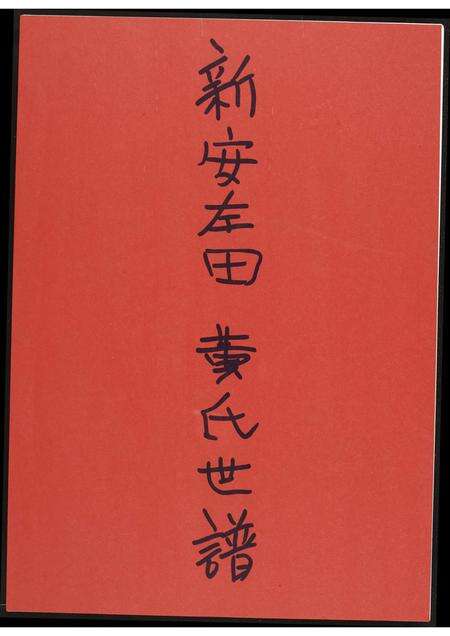 新安左田 黄氏世譜